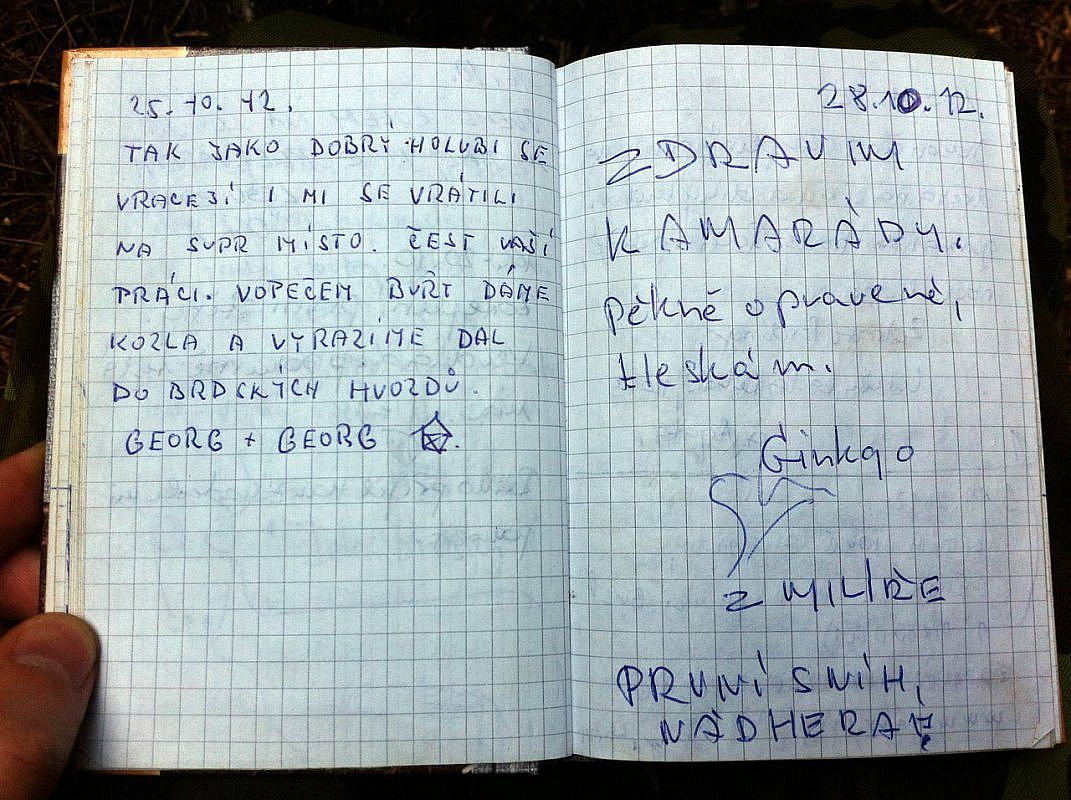 25.10.12.
TAK JAKO DOBRÝ HOLUBI SE
VRACEJÍ I MI SE VRÁTILI
NA SUPR MÍSTO. ČEST VAŠÍ
PRÁCI. VOPEČEM BUŘT DÁME
KOZLA A VYRAZÍME DAL
DO BRDSKÝCH HVOZDŮ.
GEORG + GEORG
28.10.12.
ZDRAVIM
KAMARÁDY.
Pěkně opravené,
tleskám.
Ginkgo
Z MILÍŘE
PRVNÍ SNÍH,
NÁDHERA!